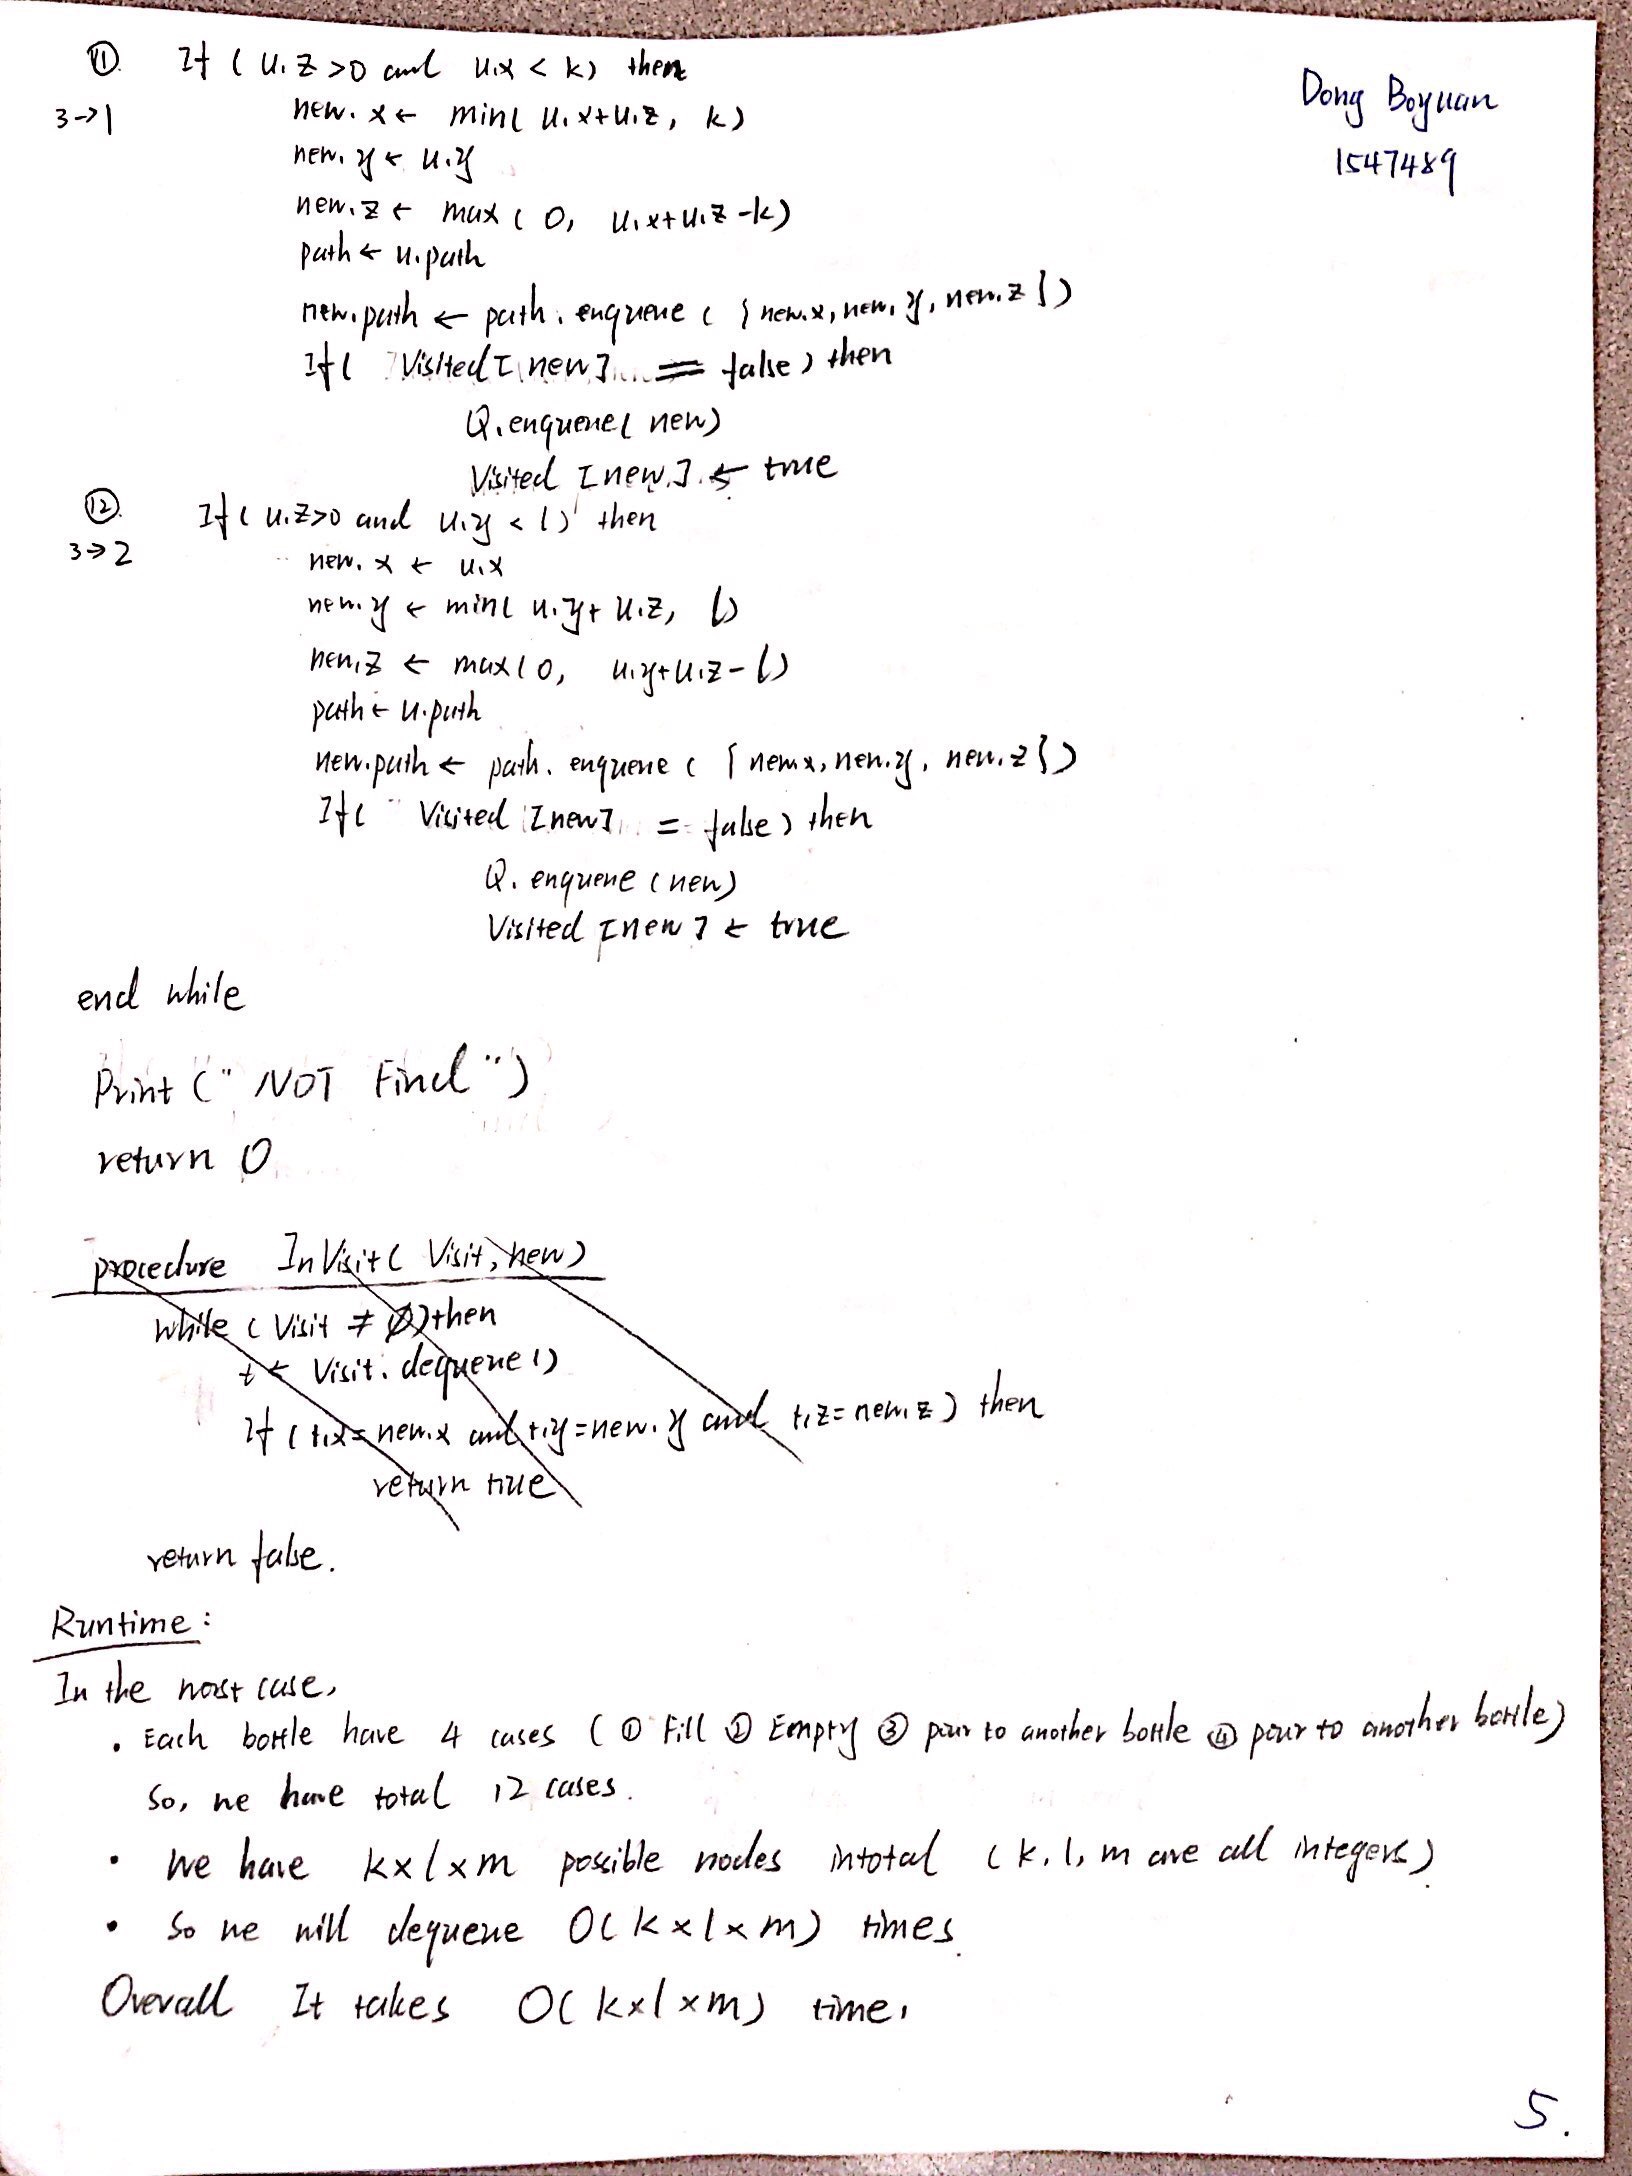 ⑪. If ( u.z >0 and u.x < k) then
Dong Boyuan
3→1
new. x ← min( u.x+u.z, k)
1547489
new. y ← u.y
new.z ← max ( 0, u.x+u.z -k)
path ← u.path
new.path ← path. enqueue ( { new.x, new.y, new.z })
If( Visited [ new ] == false ) then
Q.enqueue( new)
Visited [new] ← true
⑫. If ( u.z>0 and u.y < l) then
3→2
new. x ← u.x
new.y ← min( u.y+ u.z, l)
new.z ← max( 0, u.y+u.z - l)
path ← u.path
new.path ← path. enqueue ( { new.x, new.y, new.z })
If( Visited [new] = false ) then
Q. enqueue (new)
Visited [new] ← true
end while
Print (" NOT Find ")
return 0
procedure InVisit( Visit, new)
while ( Visit ≠ ∅) then
t ← Visit. dequeue()
If ( t.x= new.x and t.y=new.y and t.z= new.z ) then
return true
return false.
Runtime :
In the worst case,
• Each bottle have 4 cases ( ① Fill ② Empty ③ pour to another bottle ④ pour to another bottle)
So, we have total 12 cases.
• We have k×l×m possible nodes intotal ( k, l, m are all integers)
• So we will dequeue O( k×l×m) times.
Overall It takes O( k×l×m) time.
5.